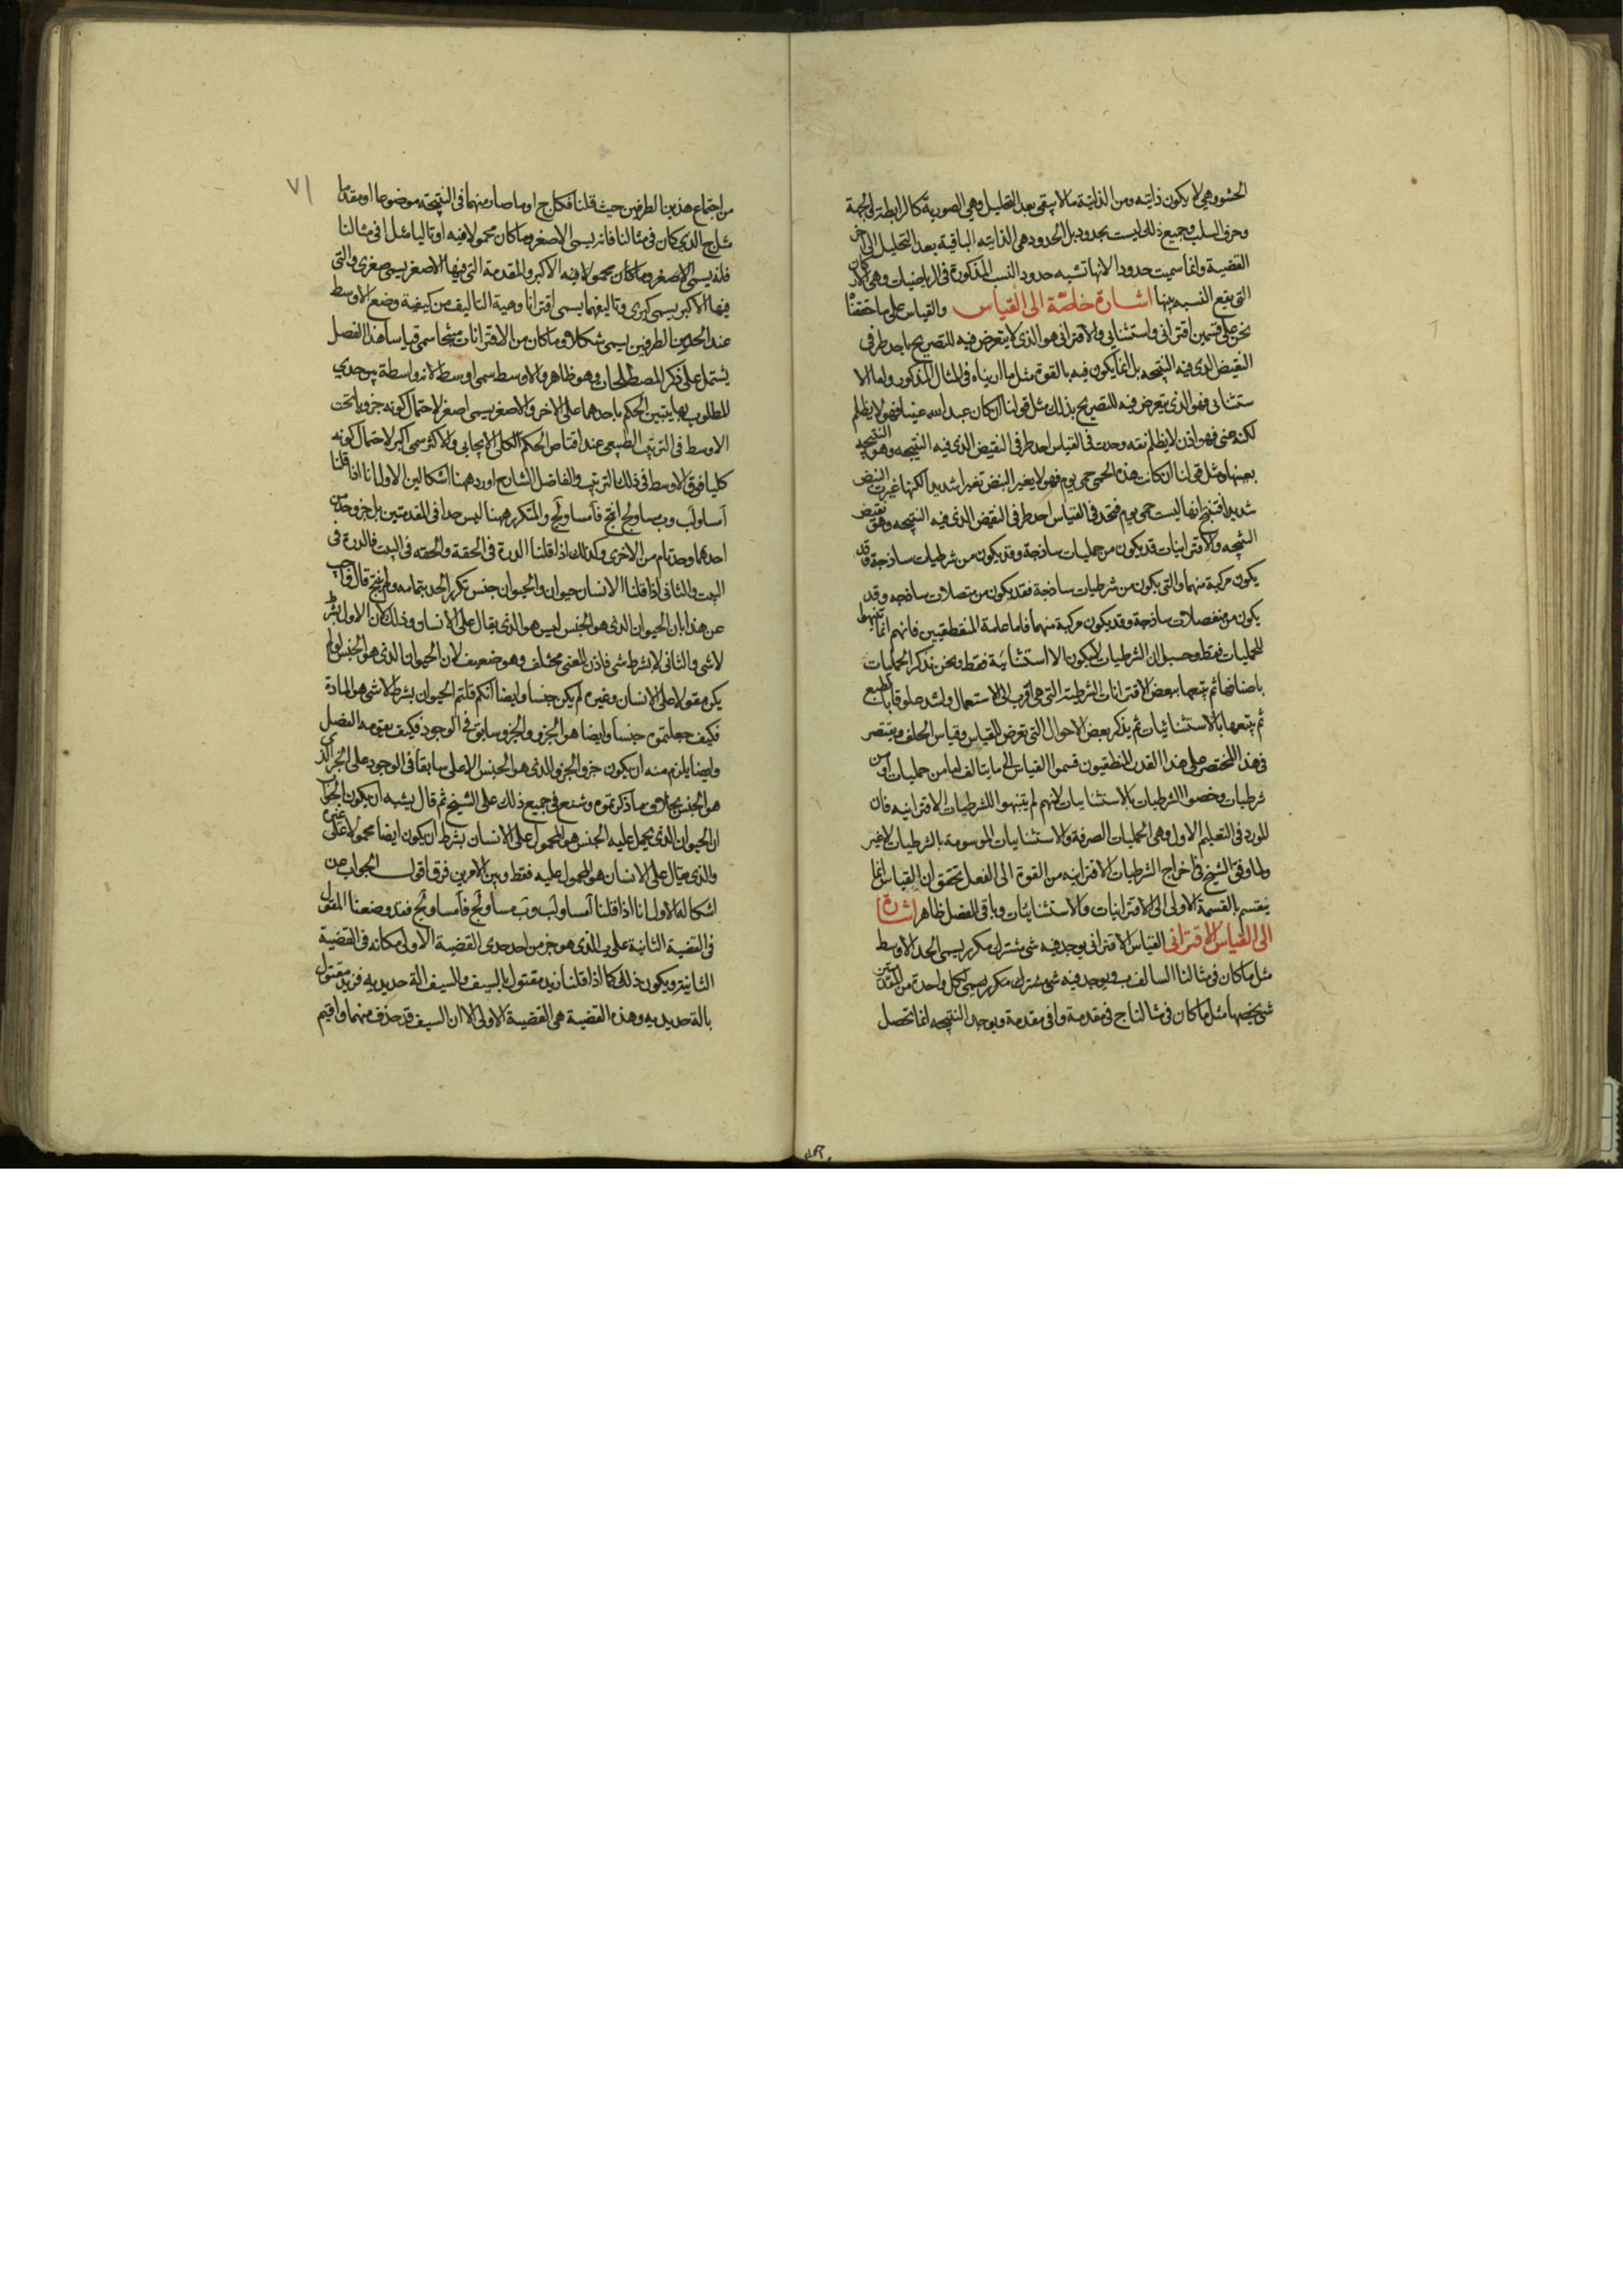 الحشو وهى لا يكون ذاتيه ومن الذاتية ما لا يبقى بعد التحليل وهى الصورية كالرابطة والجهة
وحرف السلب وجميع ذلك ليست بحدود بل الحدود هى الذاتيه الباقية بعد التحليل الى
القضية وانما سميت حدودا لانها تشبه حدود النسب المذكورة فى الرياضيات وهى الاركان
التى يقع النسبه بينها اشارة خاصة الى القياس والقياس على ما حققنا
نحن على قسمين اقترانى واستثنايى والاقترانى هو الذى لا يتعرض فيه للتصريح باحد طرفى
النقيض الذى فيه النتيجه بل انما يكون فيه بالقوة مثل ما اريناه فى المثال المذكور واما الا
ستثنائى فهو الذى يتعرض فيه للتصريح بذلك مثل قولنا ان كان عبد الله غنيا فهو لا يظلم
لكنه غنى فهو اذن لا يظلم فقد وجدت فى القياس احد طرفى النقيض الذى فيه النتيجه وهو النتيجه
بعينها ومثل قولنا ان كانت هذه الحمى حمى يوم فهو لا يغير النبض تغيرا شديدا لكنها غيرت النبض
شديدا فينتج انها ليست حمى يوم فتجد فى القياس احد طرفى النقيض الذى فيه النتيجه وهو نقيض
النتيجه والاقترانيات قد يكون من حمليات ساذجة وقد يكون من شرطيات ساذجة وقد
يكون مركبة منهما والتى يكون من شرطيات ساذجة فقد يكون من متصلات ساذجه وقد
يكون من منفصلات ساذجة وقد يكون مركبة منهما فاما عامة المنطقيين فانهم انما تنبهوا
للحمليات فقط وحسبوا ان الشرطيات لا يكون الا استثنائية فقط ونحن نذكر الحمليات
باصنافها ثم نتبعها ببعض الاقترانات الشرطية التى هى اقرب الى الاستعمال واشد علوقا بالطبع
ثم نتبعها بالاستثنائيات ثم نذكر بعض الاحوال التى تعرض للقياس وقياس الخلف ونقتصر
فى هذا المختصر على هذا القدر المنطقيون قسموا القياس الى ما يتالف اما من حمليات او من
شرطيات وخصوا الشرطيات بالاستثنايات لانهم لم يتنبهوا للشرطيات الاقترانيه فان
المورد فى التعليم الاول هى الحمليات الصرفة والاستثنايات الموسومة بالشرطيات لا غير
ولما وفق الشيخ فى اخراج الشرطيات الاقترانيه من القوة الى الفعل تحقق ان القياس انما
ينقسم بالقسمة الاولى الى الاقترانيات والاستثنائيات وباقى الفصل ظاهر اشارة
الى القياس الاقترانى القياس الاقترانى يوجد فيه شى مشترك مكرر يسمى الحد الاوسط
مثل ما كان فى مثالنا السالف ب ويوجد فيه شى مشترك مكرر يسمى لكل واحدة من المقدمتين
شى يخصها مثل ما كان فى مثالنا ج فى مقدمة وا فى مقدمة ويوجد النتيجه انما تحصل
٧١
من اجتماع هذين الطرفين حيث قلنا فكل ج ا وما صار منهما فى النتيجه موضوعا او مقدما
مثل ج الذى كان فى مثالنا فانه يسمى الاصغر وما كان محمولا فيه او تاليا مثل ا فى مثالنا
فانه يسمى الاصغر وما كان محمولا فيه الاكبر والمقدمة التى فيها الاصغر يسمى صغرى والتى
فيها الاكبر يسمى كبرى وتاليفهما يسمى اقترانا وهيئة التاليف من كيفية وضع الاوسط
عند الحدين الطرفين يسمى شكلا وما كان من الاقترانات منتجا سمى قياسا هذا الفصل
يشتمل على ذكر المصطلحات وهو ظاهر والاوسط سمى اوسط لانه واسطة بين حدى
المطلوب بها يتبين الحكم باحدهما على الاخر والاصغر يسمى اصغر لاحتمال كونه جزويا تحت
الاوسط فى الترتيب الطبيعى عند اقتناص الحكم الكلى الايجابى والاكثر سمى اكبر لاحتمال كونه
كليا فوق الاوسط فى ذلك الترتيب والفاضل الشارح اورد ههنا اشكالين الاول انا اذا قلنا
ا مساو لب وب مساو لج انتج فا مساو لج والمتكرر ههنا ليس حدا فى المقدمتين بل جزو حد من
احدهما وحد تام من الاخرى وكذلك اذا قلنا الدرة فى الحقة والحقه فى البيت فالدرة فى
البيت والثانى اذا قلنا الانسان حيوان والحيوان جنس تكرر الحد بتمامه ولم ينتج قال فاجيب
عن هذا بان الحيوان الذى هو الجنس ليس هو الذى يقال على الانسان وذلك لان الاول بشرط
لا شى والثانى لا بشرط شى فاذن المعنى مختلف وهو ضعيف لان الحيوان الذى هو الجنس لو لم
يكن مقولا على الانسان وغيره لم يكن جنسا وايضا انكم قلتم الحيوان بشرط لا شى هو المادة
فكيف جعلتموه جنسا وايضا هو الجزو والجزو سابق فى الوجود فكيف يقومه الفصل
وايضا يلزم منه ان يكون جزو الجزو الذى هو الجنس الاعلى سابقا فى الوجود على الجزو الذى
هو الجنس بخلاف ما ذكرتموه وشنع فى جميع ذلك على الشيخ ثم قال يشبه ان يكون الجواب
ان الحيوان الذى يحمل عليه الجنس هو المحمول على الانسان بشرط ان يكون ايضا محمولا على غيره
والذى يقال على الانسان هو المحمول عليه فقط وبين الامرين فرق اقول الجواب عن
اشكاله الاول انا اذا قلنا ا مساو لب وب مساو لج فا مساو لج فقد وضعنا المقول
فى القضية الثانية على ب الذى هو جزء من احد حدى القضية الاولى مكانه فى القضية
الثانية ويكون ذلك كما اذا قلنا زيد مقتول بالسيف والسيف الة حديديه فزيد مقتول
بالة حديديه وهذه القضية هى القضية الاولى الا ان السيف قد حذف منهما واقيم